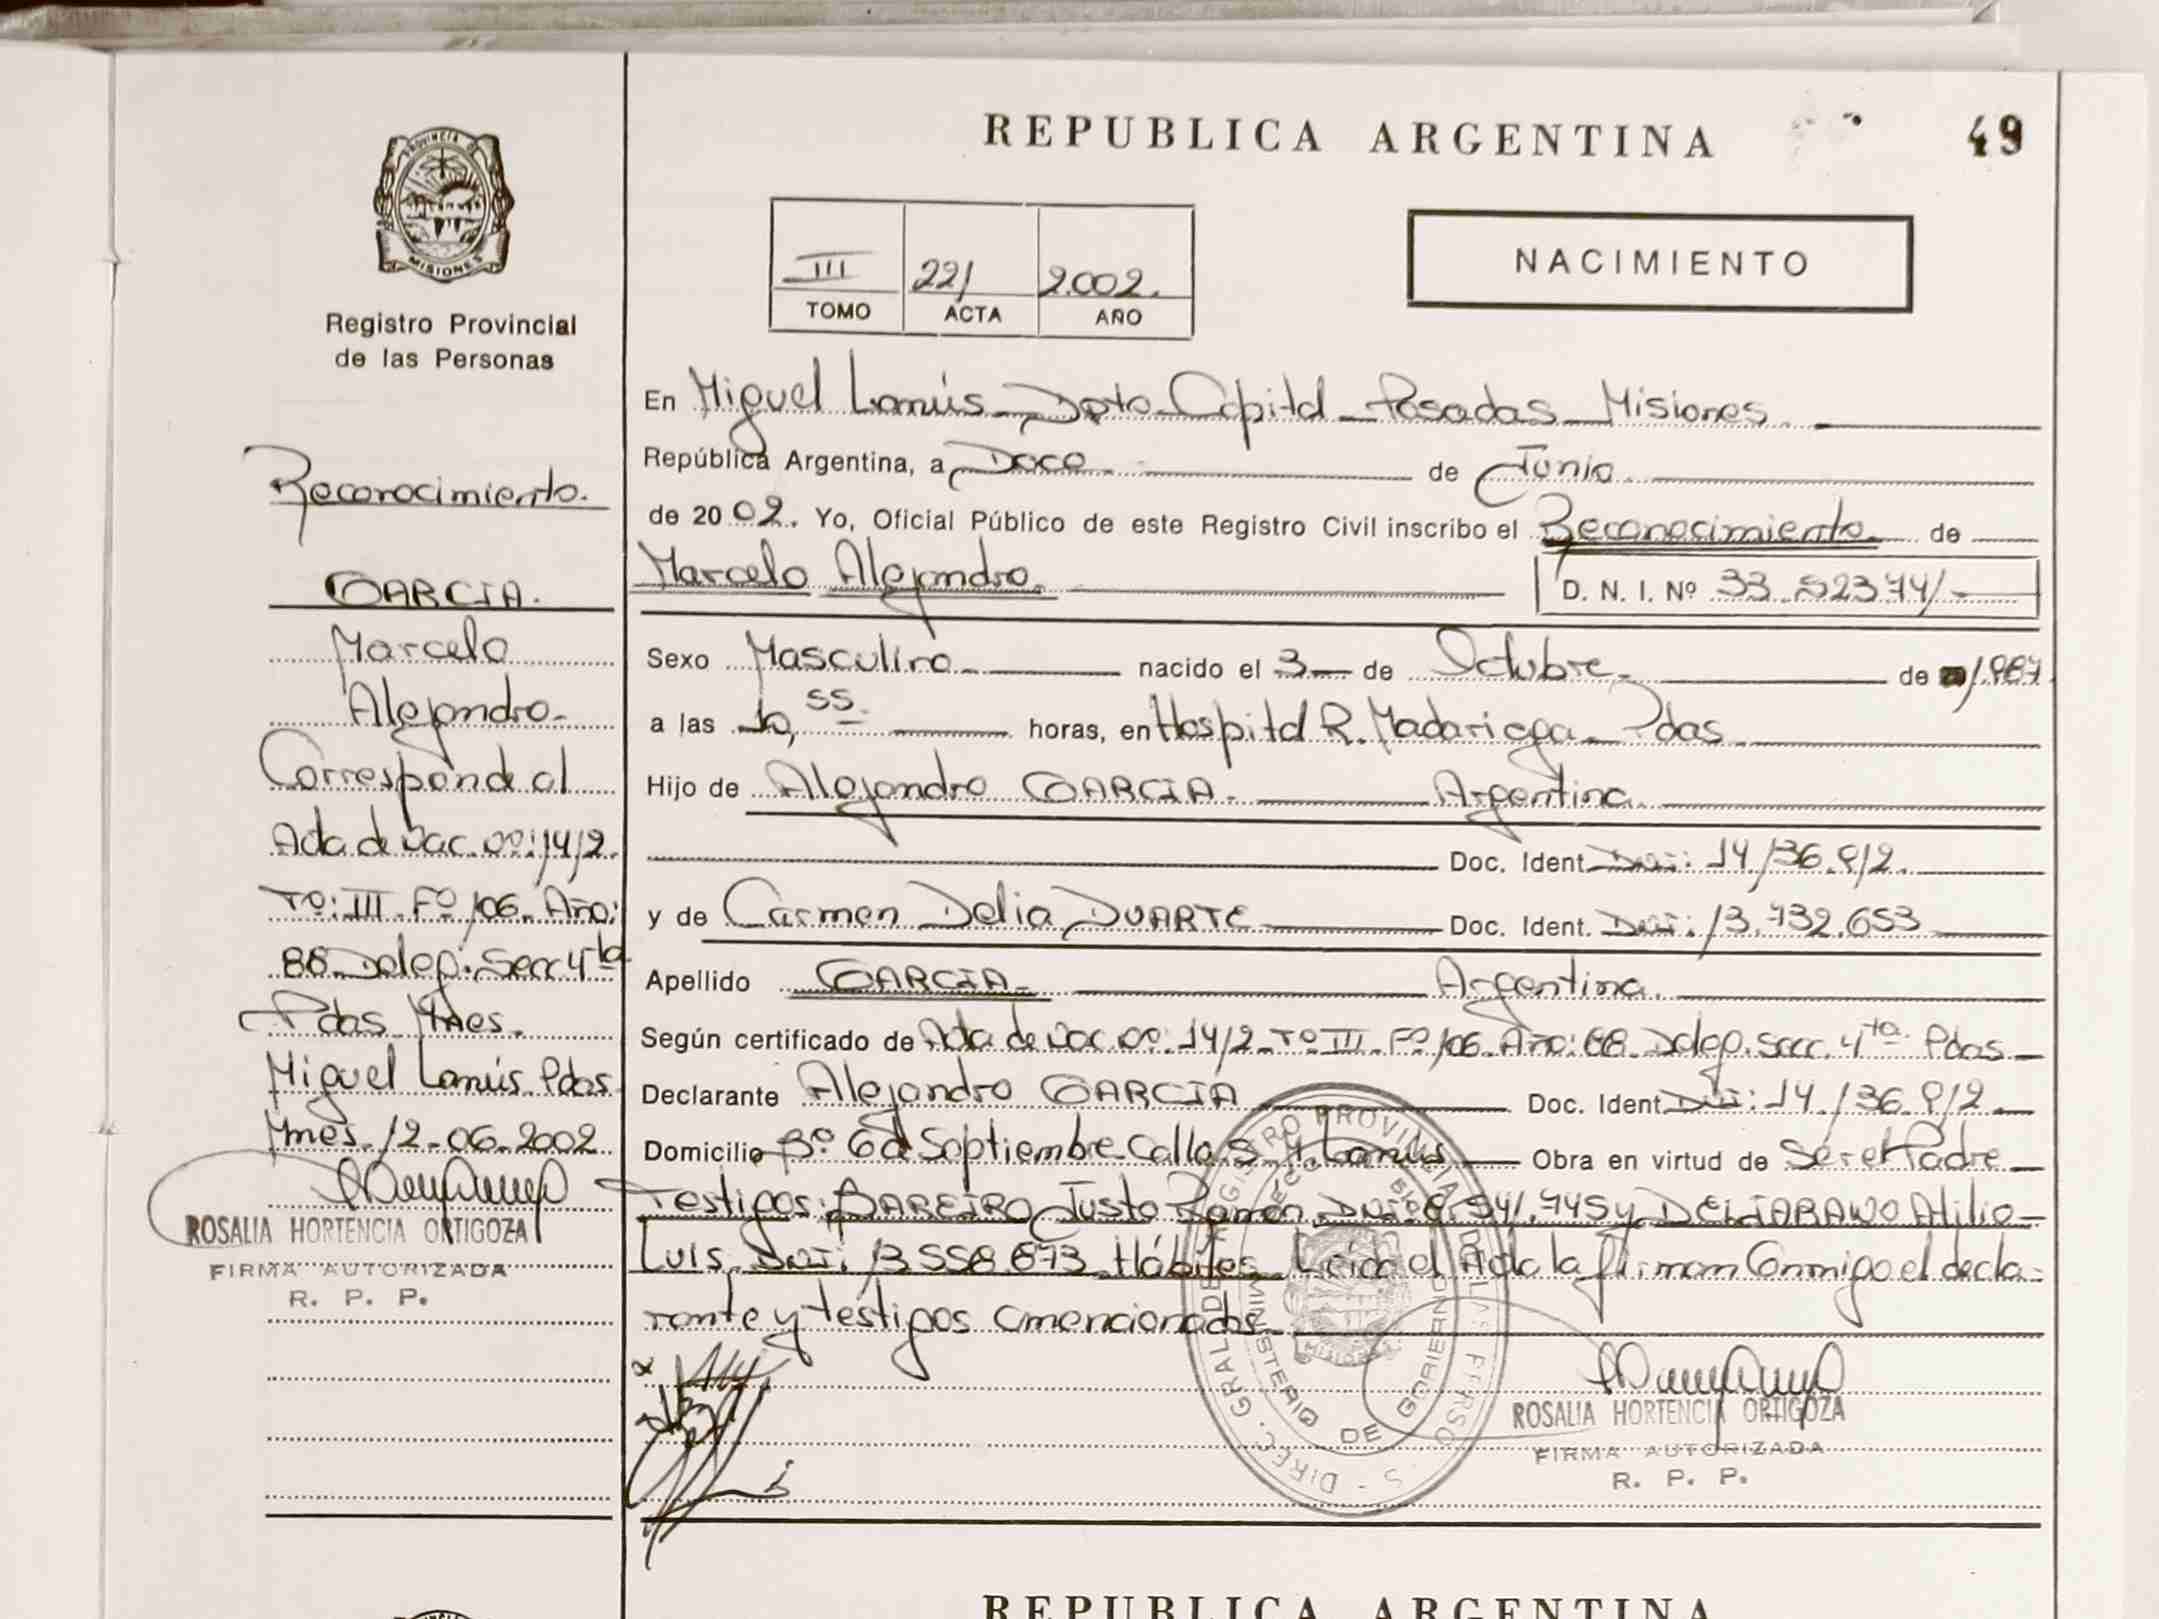 REPUBLICA ARGENTINA
49
PROVINCIA DE
MISIONES
Registro Provincial
de las Personas
III 221 2.002.
TOMO ACTA AÑO
NACIMIENTO
Reconocimiento.
GARCIA.
Marcelo
Alejandro.
Corresponde al
Acta de Nac. Nº: 1412.
Tº: III. Fº 106. Año:
88. Deleg. Secc 4ta
Pdas Mnes.
Miguel Lanús. Pdas.
Mnes. 12-06-2002
ROSALIA HORTENCIA ORTIGOZA
FIRMA AUTORIZADA
R. P. P.
En Miguel Lanús - Dpto. Capital - Posadas - Misiones.
República Argentina, a Doce de Junio
de 2002. Yo, Oficial Público de este Registro Civil inscribo el Reconocimiento de
Marcelo Alejandro. D. N. I. Nº 33.523741
Sexo Masculino nacido el 3 de Octubre de 1.987.
a las 10,55 horas, en Hospital R. Madariaga - Pdas
Hijo de Alejandro GARCIA. Argentina.
Doc. Ident. DNI: 14.136.912.
y de Carmen Delia DUARTE Doc. Ident. DNI: 13.732.653
Apellido GARCIA Argentina.
Según certificado de Acta de Nac. Nº: 1412 - Tº III. Fº 106. Año: 88. Deleg. Secc. 4ta. Pdas
Declarante Alejandro GARCIA Doc. Ident. DNI: 14.136.912
Domicilio Bº 6 d Septiembre Calle S. M. Lanús Obra en virtud de Ser el Padre
Testigos: BAREIRO Justo Ramón DNI 8.541.745 y Atilio
Luis DNI: 13.558.873 Hábiles. Leida el Acta la firman Conmigo el decla-
rante y testigos mencionados.
DIREC. GRAL. DE REGISTRO PROVINCIAL
MINISTERIO DE GOBIERNO
MISIONES
ROSALIA HORTENCIA ORTIGOZA
FIRMA AUTORIZADA
R. P. P.
REPUBLICA ARGENTINA